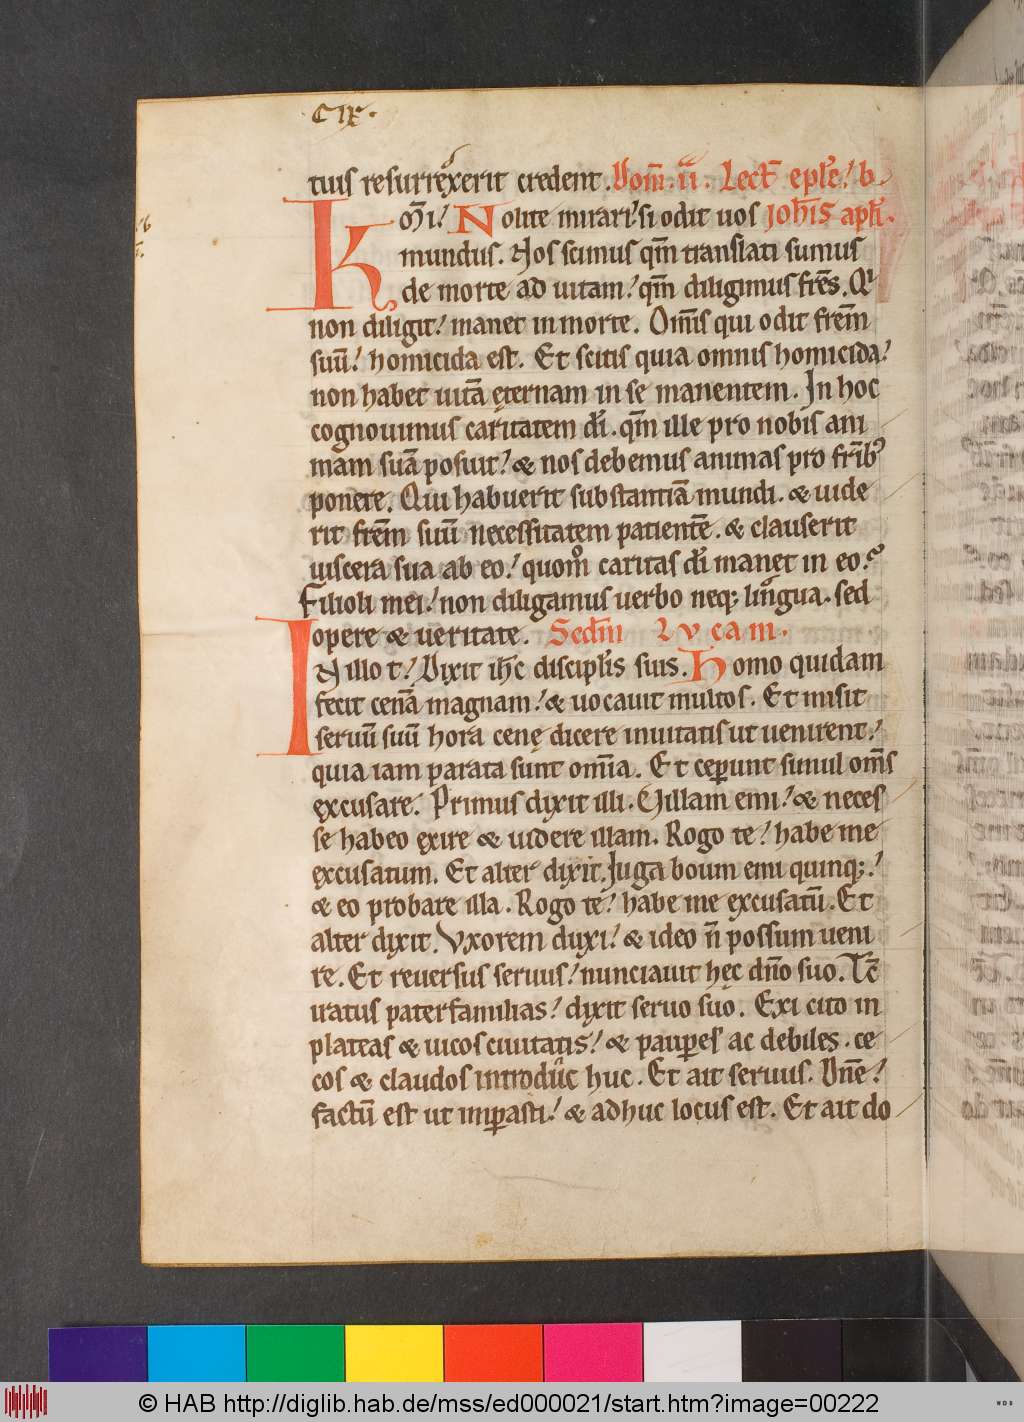 · C IX ·
tuus resurrexerit credent. Dom̄. ii. Lect̄ epl̄e ! b.
K om̄i ! Nolite mirari ! si odit uos Joh̄is apl̄i.
mundus. Nos scimus qm̄ translati sumus
de morte ad uitam ! qm̄ diligimus fr̄es. Qi
non diligit ! manet in morte. Om̄is qui odit fr̄em
suū ! homicida est. Et scitis quia omnis homicida !
non habet uitā ęternam in se manentem. In hoc
cognouimus caritatem dī. qm̄ ille pro nobis ani
mam suā posuit ! & nos debemus animas pro fr̄ib;
ponere. Qui habuerit substantiā mundi. & uide
rit fr̄em suū necessitatem patientē. & clauserit
uiscera sua ab eo ! quom̊ caritas dī manet in eo ?
Filioli mei ! non diligamus uerbo neq; lingua. sed
opere & ueritate. Scd̄m Lvcam.
IN illo t̄ ! Dixit ih̄c discipl̄is suis. Homo quidam
fecit cenā magnam ! & uocauit multos. Et misit
seruū suū hora cenę dicere inuitatis ut uenirent !
quia iam parata sunt om̄ia. Et ceꝑunt simul om̄s
excusare. Primus dixit illi. Uillam emi ! & neces
se habeo exire & uidere illam. Rogo te ! habe me
excusatum. Et alter dixit. Juga boum emi quinq; !
& eo probare illa. Rogo te ! habe me excusatū. Et
alter dixit. Vxorem duxi ! & ideo n̄ possum ueni
re. Et reuersus seruus ! nunciauit hęc dn̄o suo. Tc̄
iratus paterfamilias ! dixit seruo suo. Exi cito in
plateas & uicos ciuitatis ! & pauꝑes ac debiles. ce
cos & claudos introduc huc. Et ait seruus. Dn̄e !
factū est ut imꝑasti ! & adhuc locus est. Et ait do
© HAB http://diglib.hab.de/mss/ed000021/start.htm?image=00222